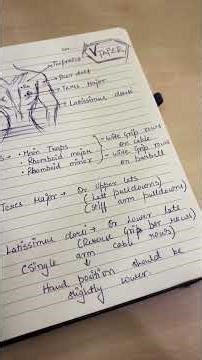 V TAPER
Trapezius
Rear delt
Teres Major
Latissimus dorsi
• Main Traps
• Rhomboid major
• Rhomboid minor
- Wide Grip rows
on cable
- Wide Grip rows
on barbell
Teres Major → Or Upper lats
(Lat pulldowns)
(Stiff arm pulldowns)
Latissimus dorsi → Or Lower lats
(Reverse Grip rows)
(Single arm cable rows)
↓
Hand position should be
slightly wider